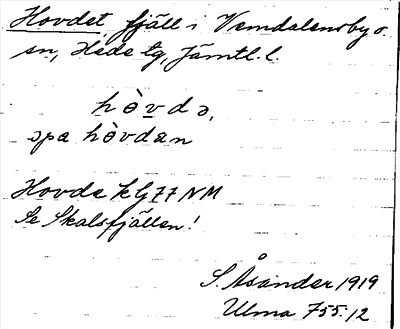 Hovdet, fjäll i Vemdalens by o.
sn, Hede tg, Jämtl. l.
hòvdə,
əpa hòvdan
Hovde kG77 NM
Se Skalsfjällen!
S. Åsander 1919
Ulma 755:12